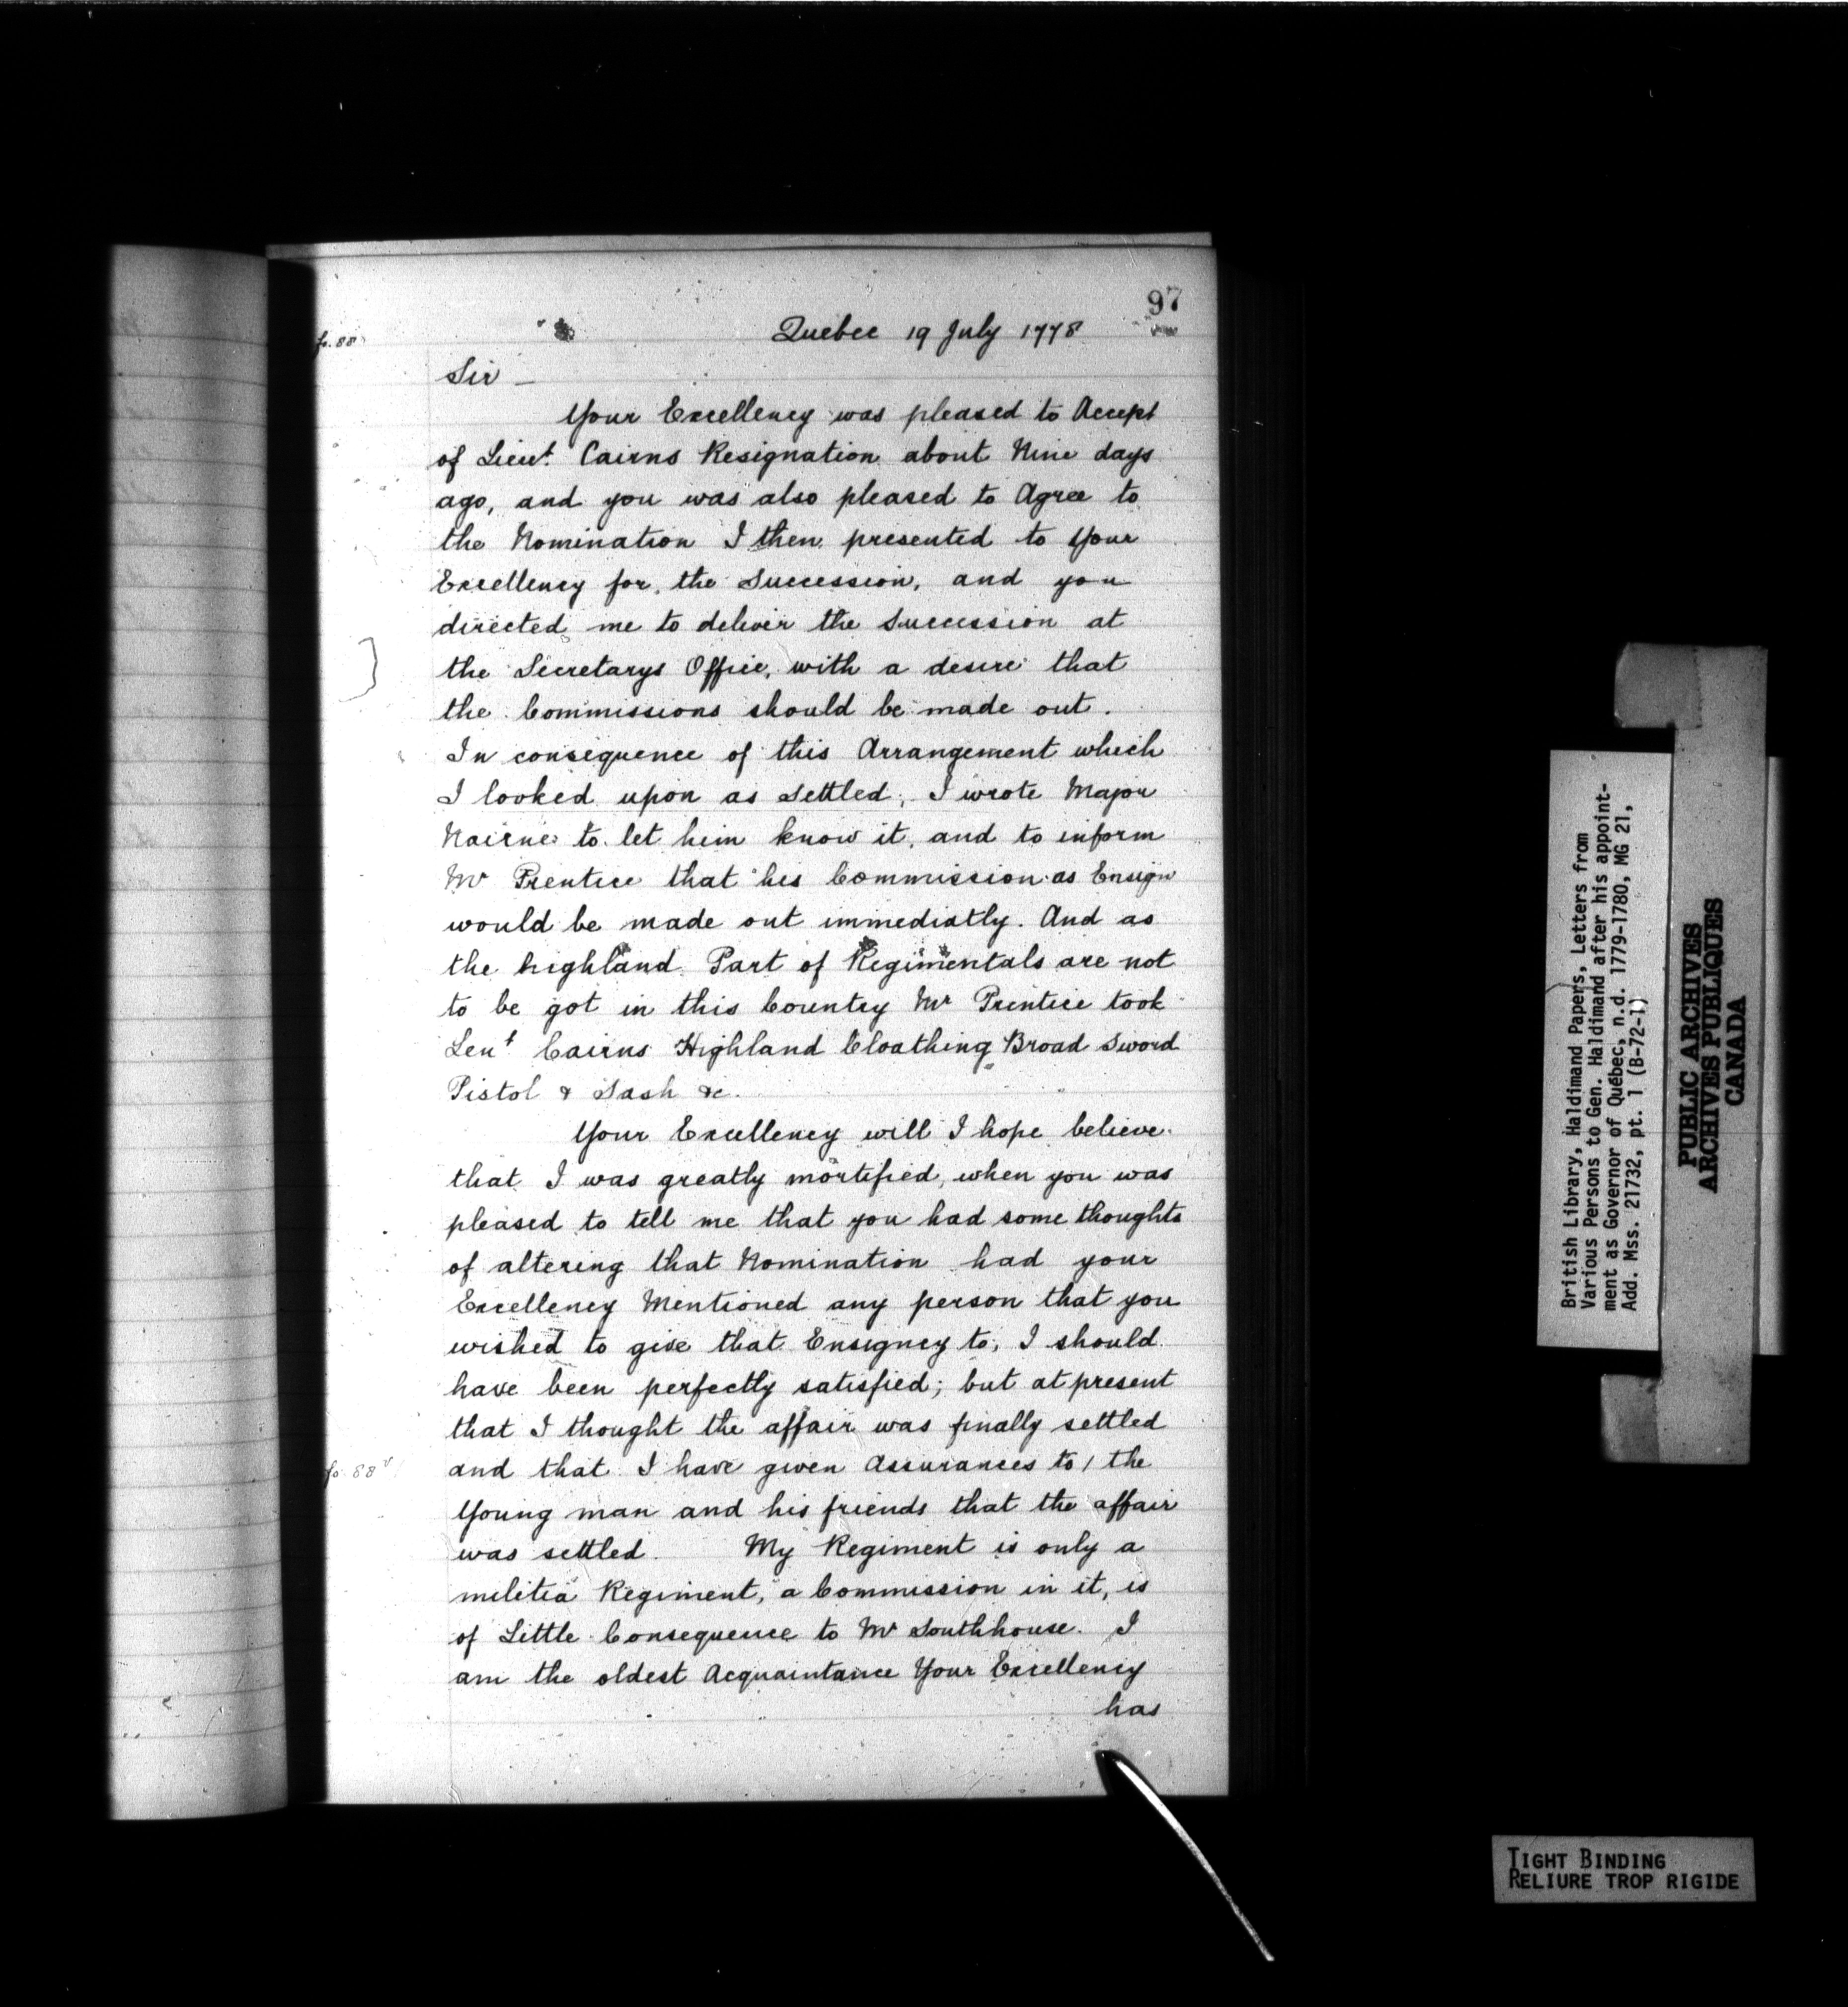 97
fo. 88
Quebec 19 July 1778
Sir –
Your Excellency was pleased to Accept
of Lieut. Cairns Resignation about Nine days
ago, and you was also pleased to Agree to
the Nomination I then presented to Your
Excellency for the Succession, and you
directed me to deliver the Succession at
the Secretarys Office, with a desire that
the Commissions should be made out.
In consequence of this Arrangement which
I looked upon as settled, I wrote Major
Nairne to let him know it, and to inform
Mr Prentice that his Commission as Ensign
would be made out immediatly. And as
the highland Part of Regimentals are not
to be got in this Country Mr Prentice took
Leut Cairns Highland Cloathing Broad Sword
Pistol & Sash &c.
Your Excellency will I hope believe
that I was greatly mortified, when you was
pleased to tell me that you had some thoughts
of altering that Nomination had your
Excellency Mentioned any person that you
wished to give that Ensigncy to, I should
have been perfectly satisfied; but at present
that I thought the affair was finally settled
fo. 88v
and that I have given Assurances to / the
Young man and his friends that the affair
was settled. My Regiment is only a
militia Regiment, a Commission in it, is
of Little Consequence to Mr Southhouse. I
am the oldest Acquaintance Your Excellency
has
British Library, Haldimand Papers, Letters from
Various Persons to Gen. Haldimand after his appoint-
ment as Governor of Québec, n.d. 1779-1780, MG 21,
Add. Mss. 21732, pt. 1 (B-72-1)
PUBLIC ARCHIVES
ARCHIVES PUBLIQUES
CANADA
TIGHT BINDING
RELIURE TROP RIGIDE